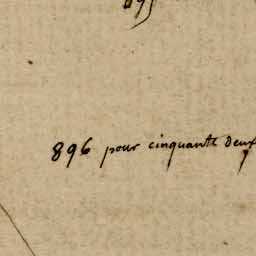 896 pour cinquante deux